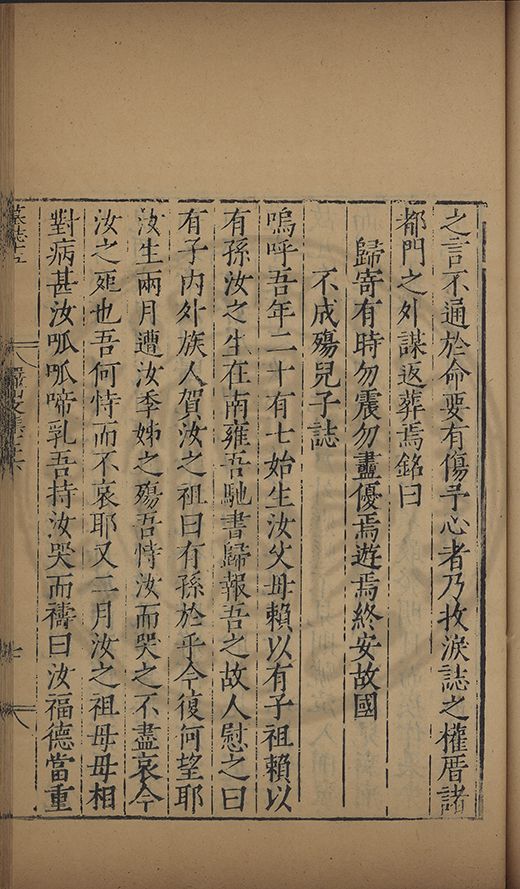 之言不通於命要有傷予心者乃收淚誌之權厝諸
都門之外謀返葬焉銘曰
歸寄有時勿震勿盡優焉遊焉終安故國
不成殤兒子誌
嗚呼吾年二十有七始生汝父母賴以有子祖賴以
有孫汝之生在南雍吾馳書歸報吾之故人慰之曰
有子內外族人賀汝之祖曰有孫於乎今復何望耶
汝生兩月遭汝季姊之殤吾恃汝而哭之不盡哀今
汝之死也吾何恃而不哀耶又二月汝之祖母母相
對病甚汝呱呱啼乳吾持汝哭而禱曰汝福德當重
墓誌五